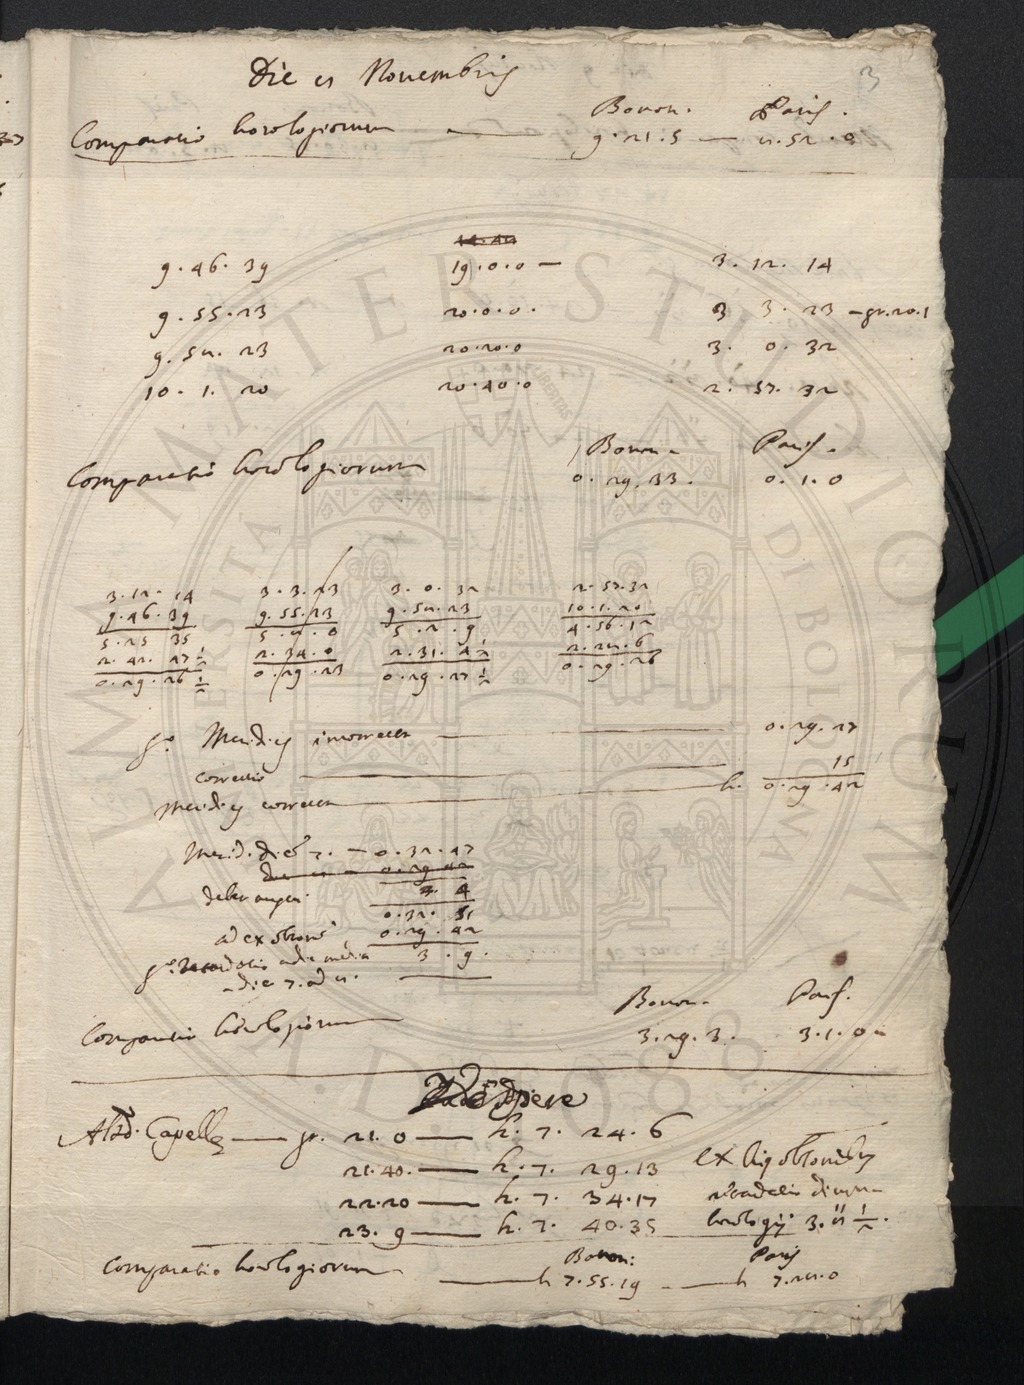 3
Die 8 Novembris
Bonon. Paris.
Comparatio horologiorum — 9.21.5 — 8.52.0
9.46.39 19.0.0 — 3.12.14
9.55.23 20.0.0. 3 3.23 — gr.20.1
9.58.23 20.20.0 3.0.32
10.1.20 20.40.0 2.57.32
Bonon. Paris.
Comparatio horologiorum 0.29.33. 0.1.0
3.12.14 3.3.23 3.0.32 2.57.32
9.46.39 9.55.23 9.58.23 10.1.20
5.25 35 5.8.0 5.2.9 4.56.12
2.42.47 1/2 2.34.0 2.31.4 1/2 2.28.6
0.29.26 1/2 0.29.23 0.29.27 1/2 0.29.26
Meridies incorrecta — 0.29.27
correctio — 15
Meridies correcta — h. 0.29.42
Merid. die 7. — 0.32.47
debet augeri 4
0.32.51
ad ex obsone 0.29.42
retardatio a die media 3.9.
die 7. ad 8. —
Bonon. Paris.
Comparatio horologiorum 3.29.3. 3.1.0
Vespere
Altid. Capellæ — gr. 21.0 — h. 7. 24.6
21.40. — h. 7. 29.13 ex his obsonibus
22.20 — h. 7. 34.17 retardatio diurna
23.9 — h. 7. 40.35 horologij 3.8" 1/2.
Bonon: Paris
Comparatio horologiorum — h 7.55.19 — h 7.28.0
ALMA MATER STUDIORUM
UNIVERSITÀ DI BOLOGNA
A.D. 1088
LIBERTAS